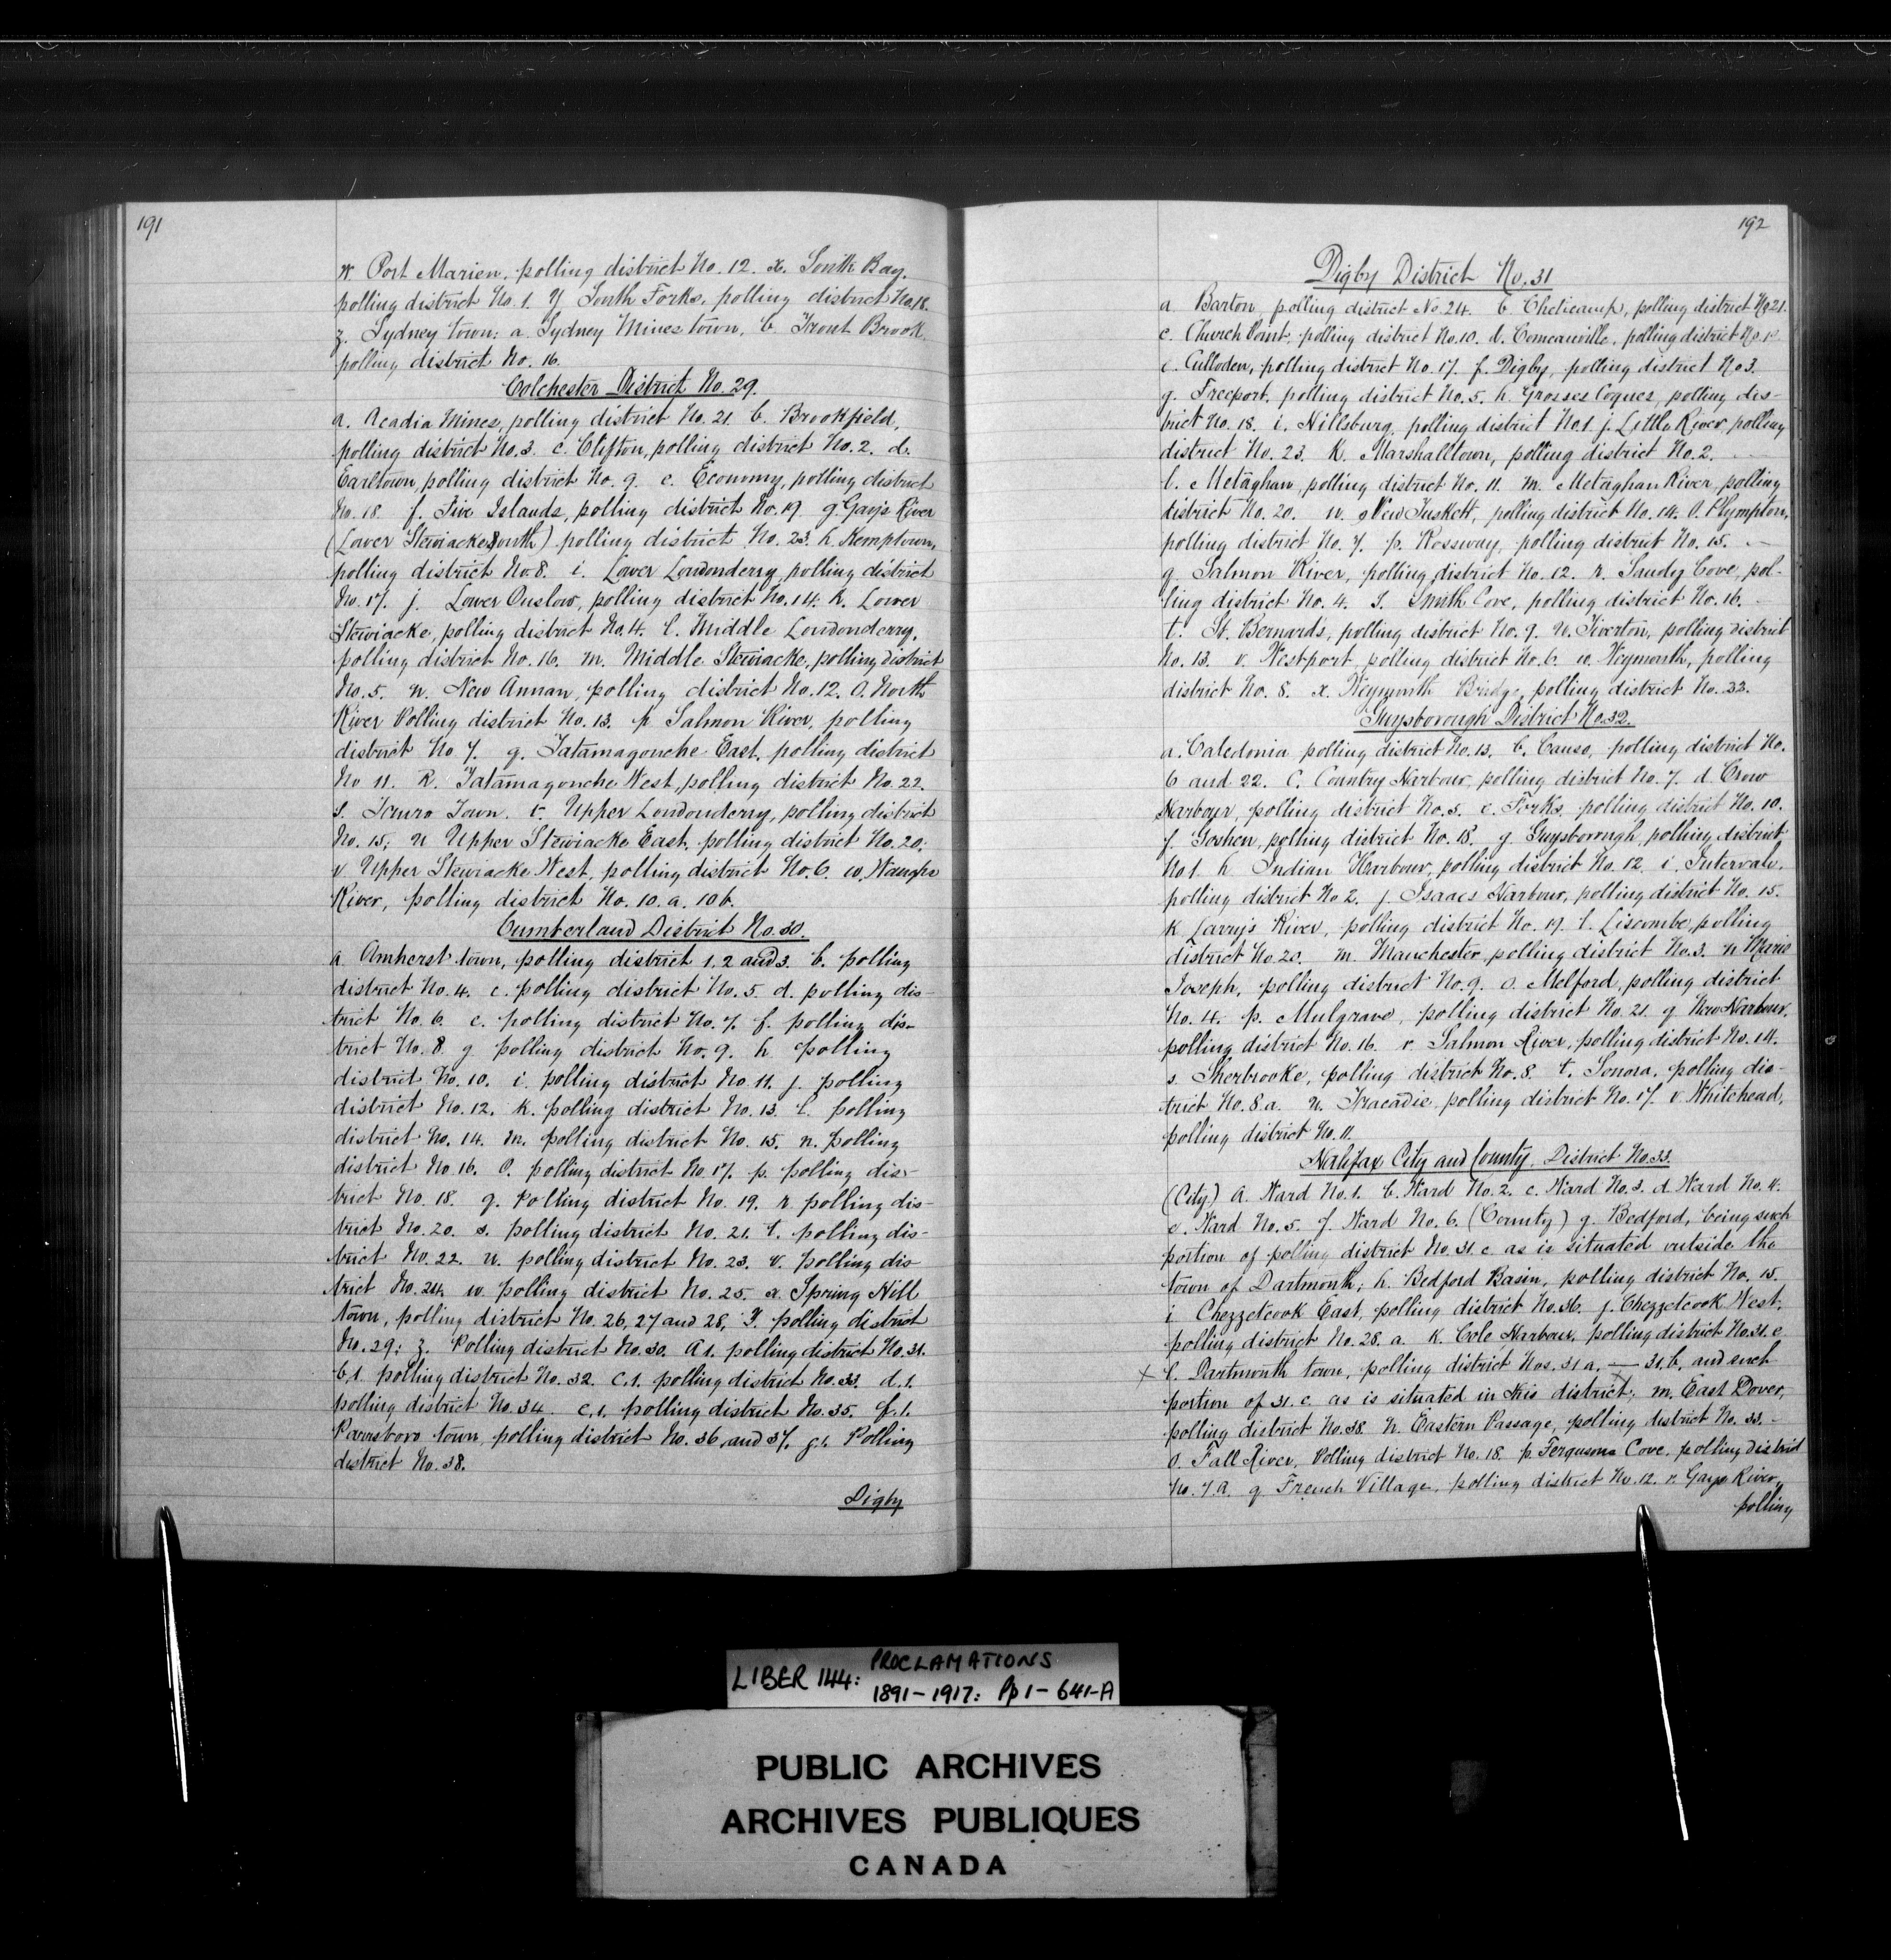 191
w Port Marien, polling district No. 12. x. South Bay.
polling district No. 1. y South Forks, polling district No. 18.
z. Sydney town: a. Sydney Mines town, b. Trout Brook
polling district No. 16.
Colchester District No. 29.
a. Acadia Mines, polling district No. 21. b. Brookfield,
polling district No. 3 c. Clifton, polling district No. 2. d.
Earltown, polling district No. 9. e. Economy, polling district
No. 18. f. Five Islands, polling district No. 19 g. Gay's River
(Lower Stewiacke South) polling district No. 23. h. Kemptown,
polling district No. 8. i. Lower Londonderry, polling district
No. 17. j. Lower Onslow, polling district No. 14. k. Lower
Stewiacke, polling district No. 4. l. Middle Londonderry,
polling district No. 16. m. Middle Stewiacke, polling district
No. 5. n. New Annan, polling district No. 12. o. North
River Polling district No. 13. p. Salmon River, polling
district No 7. q. Tatamagouche East, polling district
No 11. R. Tatamagouche West, polling district No. 22.
s. Truro Town. t. Upper Londonderry, polling district
No. 15; u Upper Stewiacke East, polling district No. 20;
v Upper Stewiacke West, polling district No. 6. w. Waughs
River, polling district No. 10. a. 10 b.
Cumberland District No. 30.
a Amherst town, polling district 1, 2 and 3. b. polling
district No. 4. c. polling district No. 5 d. polling dis-
trict No. 6. e. polling district No. 7. f. polling dis-
trict No. 8 g polling district No. 9. h polling
district No. 10. i. polling district No. 11. j. polling
district No. 12. k. polling district No. 13. l. polling
district No. 14. m. polling district No. 15. n. polling
district No. 16. o. polling district No. 17. p. polling dis-
trict No. 18. q. Polling district No. 19. r polling dis-
trict No. 20. s. polling district No. 21. t. polling dis-
trict No. 22. u. polling district No. 23. v. polling dis-
trict No. 24. w. polling district No. 25. x. Spring Hill
town, polling district No. 26, 27 and 28; y. polling district
No. 29; z. Polling district No. 30. A 1. polling district No. 31.
b. 1. polling district No. 32. c. 1. polling district No. 33. d. 1.
polling district No. 34. e. 1. polling district No. 35. f. 1.
Parrsboro town, polling district No. 36 and 37. g 1. Polling
district No. 38.
Digby
192
Digby District No. 31
a Barton, polling district No. 24. b Cheticamp, polling district No 21.
c. Church Point, polling district No. 10. d. Comeauville, polling district No.
e. Culloden, polling district No. 17. f. Digby, polling district No 3.
g. Freeport, polling district No. 5. h. Grosses Coques, polling dis-
trict No. 18. i. Hillsburg, polling district No. 1. j. Little River, polling
district No. 23. K. Marshalltown, polling district No. 2.
l. Metaghan, polling district No. 11. m. Metaghan River, polling
district No. 20. n. New Tuskett, polling district No. 14. o. Plympton,
polling district No. 7. p. Rossway, polling district No. 15.
q Salmon River, polling district No. 12. r. Sandy Cove, pol-
ling district No. 4. s. Smith Cove, polling district No. 16.
t. St. Bernards, polling district No. 9. u. Tiverton, polling district
No. 13. v. Westport, polling district No. 6. w. Weymouth, polling
district No. 8. x. Weymouth Bridge, polling district No. 22.
Guysborough District No. 32.
a. Caledonia polling district No. 13. b. Canso, polling district No.
6 and 22. C. Country Harbour, polling district No. 7. d. Crow
Harbour, polling district No. 5. e. Forks, polling district No. 10.
f. Goshen, polling district No. 18. g Guysborough, polling district
No 1. h. Indian Harbour, polling district No. 12. i. Intervale,
polling district No 2. j. Isaacs Harbour, polling district No. 15.
k Larry's River, polling district No. 19. l. Liscombe, polling
district No. 20. m. Manchester, polling district No. 3. n Marie
Joseph, polling district No. 9. o. Melford, polling district
No. 4. p. Mulgrave, polling district No. 21. q New Harbour,
polling district No. 16. r Salmon River, polling district No. 14.
s. Sherbrooke, polling district No. 8. t. Sonora, polling dis-
trict No. 8 a. u. Tracadie polling district No. 17. v Whitehead,
polling district No. 11.
Halifax City and County. District No. 33.
(City) a. Ward No. 1. b. Ward No. 2. c. Ward No. 3. d Ward No. 4.
e. Ward No. 5. f. Ward No. 6. (County) g. Bedford, being such
portion of polling district No. 31. c as is situated outside the
town of Dartmouth; h. Bedford Basin, polling district No. 15.
i Chezzetcook East, polling district No. 36. j. Chezzetcook West,
polling district No. 28. a. K. Cole Harbour, polling district No. 31. e
x l. Dartmouth town, polling district Nos. 31 a. — 31. b. and such
portion of 31. c. as is situated in this district; m. East Dover,
polling district No. 38. n. Eastern Passage, polling district No. 33.
o. Fall River, Polling district No. 18. p. Fergusons Cove, polling district
No. 7. A. q. French Village, polling district No. 12. r. Gays River,
polling
LIBER 144: PROCLAMATIONS
1891-1917: Pp 1-641-A
PUBLIC ARCHIVES
ARCHIVES PUBLIQUES
CANADA